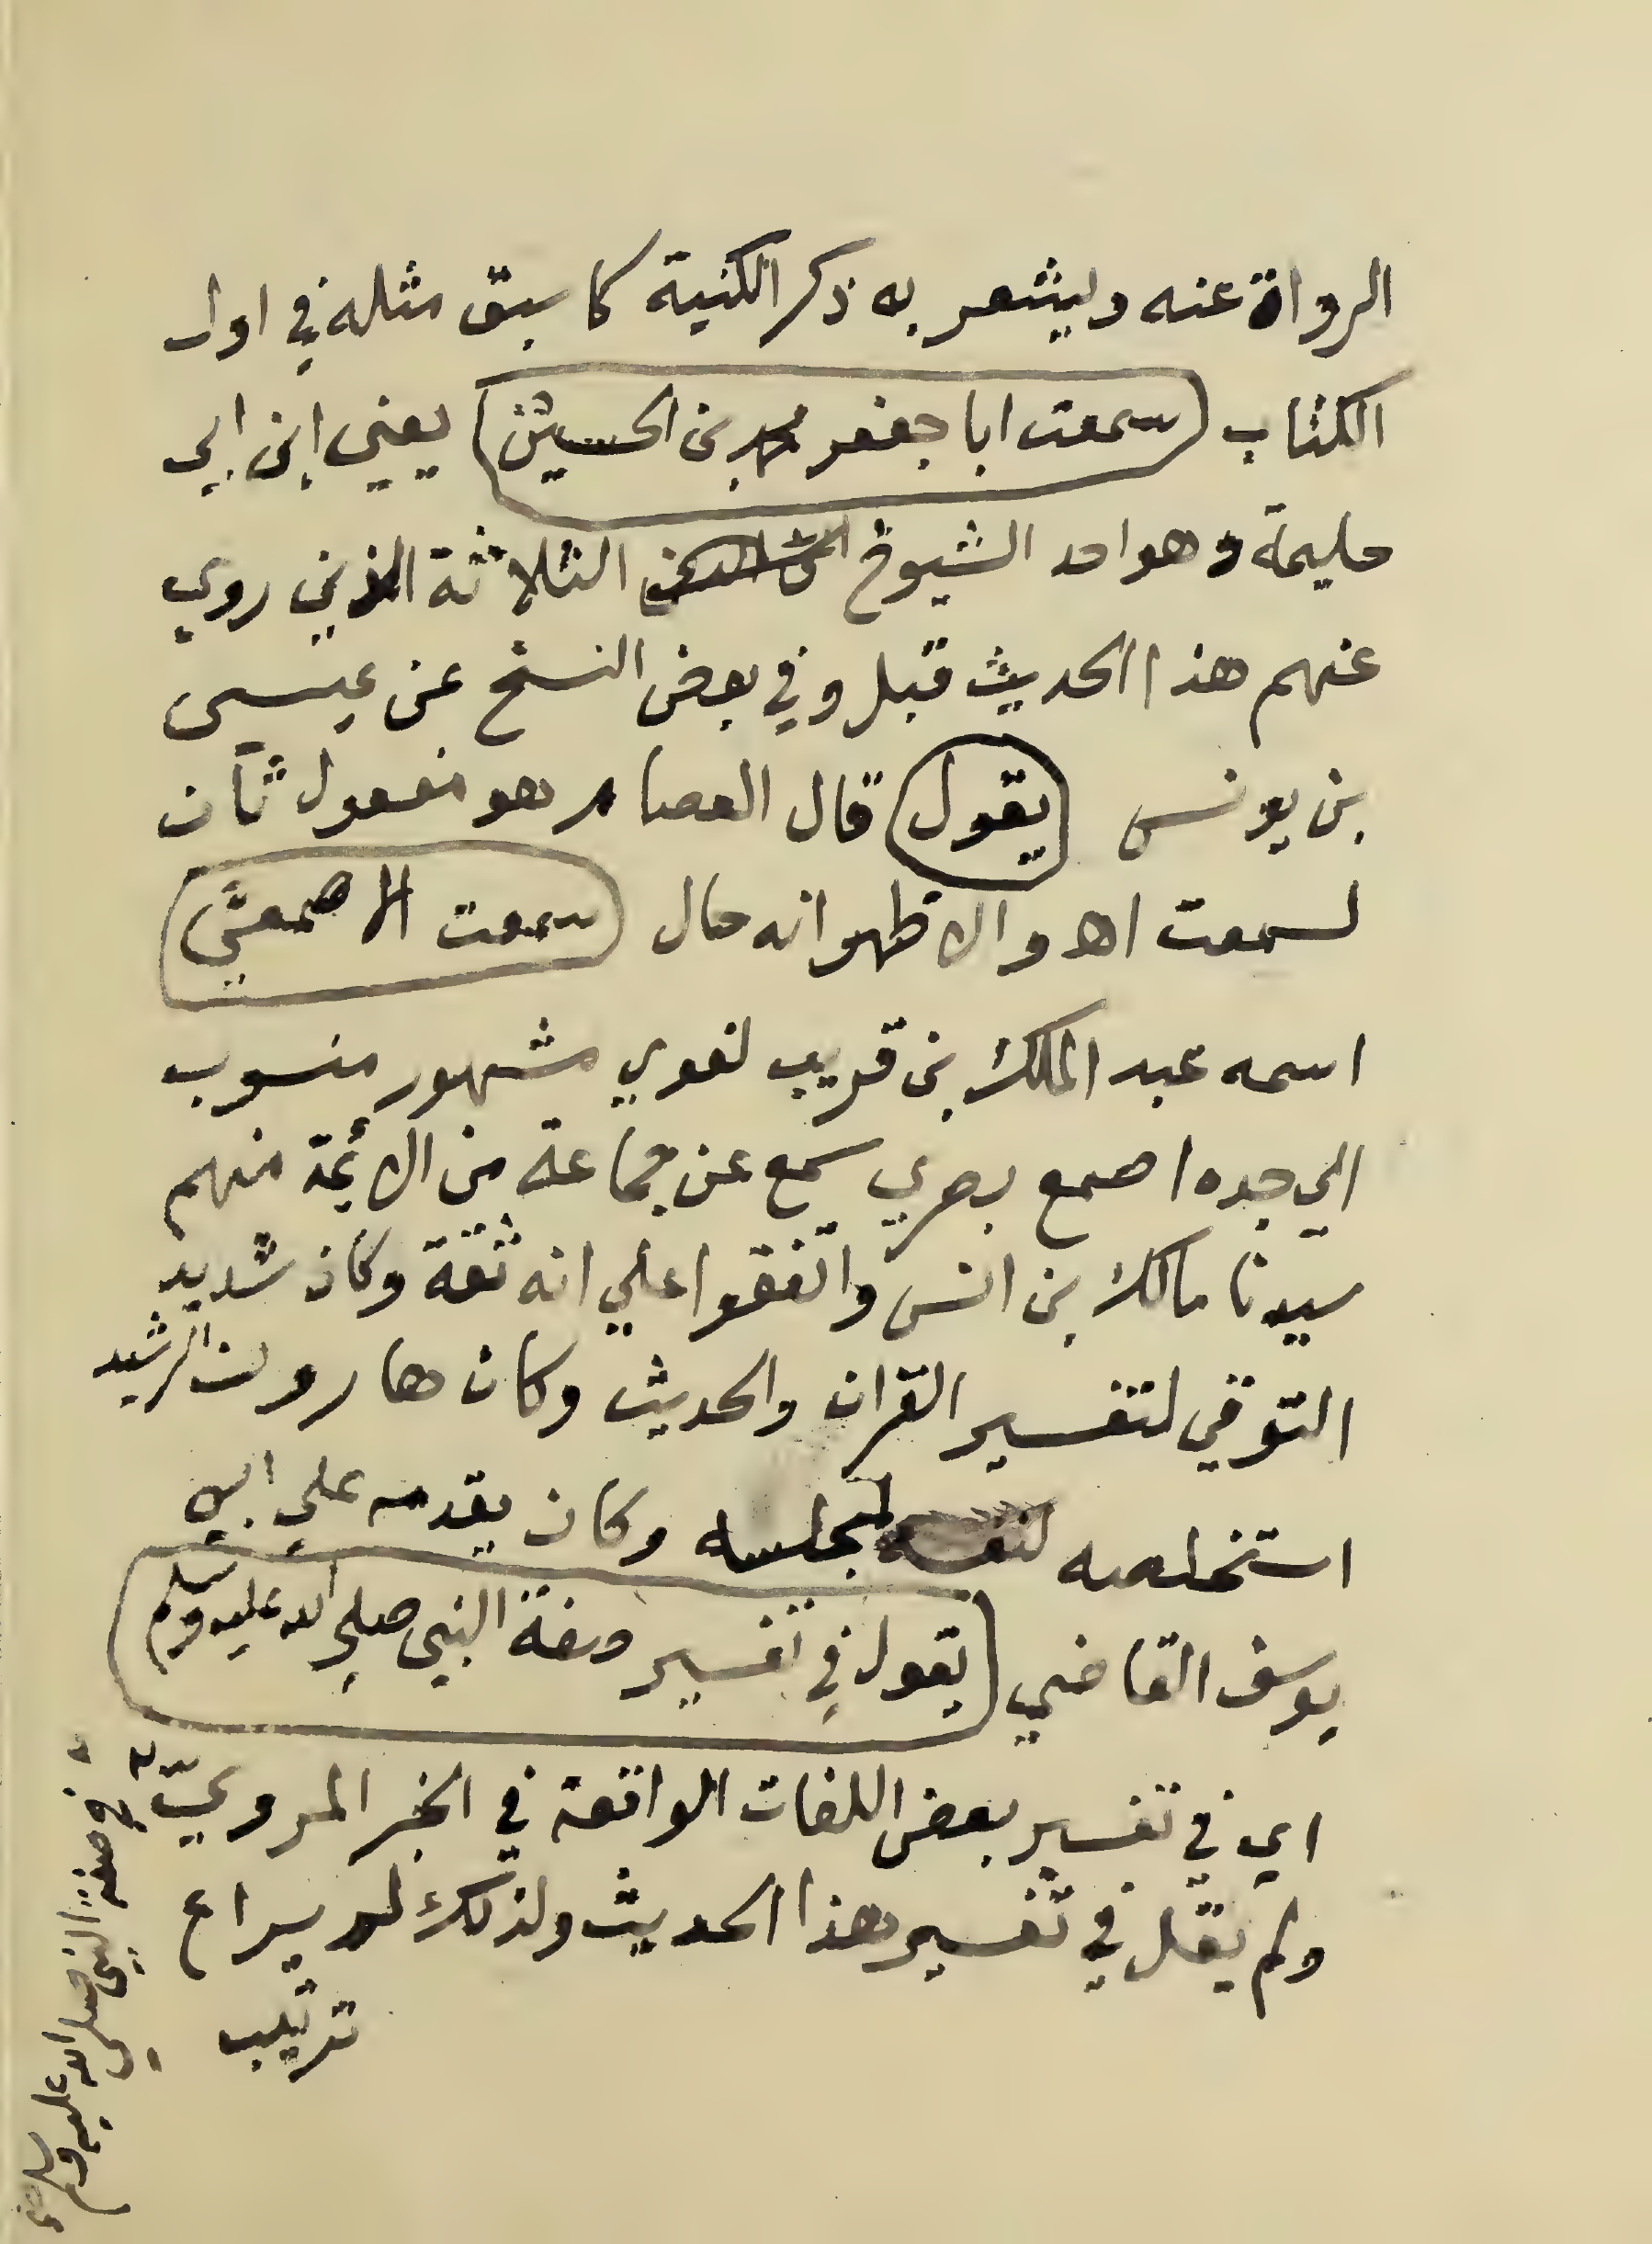 الرواة عنه ويشعر به ذكر الكنية كما سبق مثله في اول
الكتاب (سمعت ابا جعفر محمد بن الحسين) يعني ابن ابي
حليمة وهو احد الشيوخ الثلاثة الذين روي
عنهم هذا الحديث قبل وفي بعض النسخ عن عيسى
بن يونس (يقول) قال العصام هو مفعول ثان
لسمعت اهـ والاظهر انه حال (سمعت الاصمعيّ)
اسمه عبد الملك بن قريب لغوي مشهور منسوب
الي جده اصمع بصري سمع عن جماعة من الأئمة منهم
سيدنا مالك بن انس واتفقوا علي انه ثقة وكان شديد
التوقي لتفسير القران والحديث وكان هارون الرشيد
استخلصه لمجلسه وكان يقدمه علي ابي
يوسف القاضي (يقول في تفسير صفة النبي صلي الله عليه وسلم)
اي في تفسير بعض اللغات الواقعة في الخبر المرويّ
ولم يقل في تفسير هذا الحديث ولذلك لم يراع
ترتيب
في صفة النبي صلى الله عليه وسلم